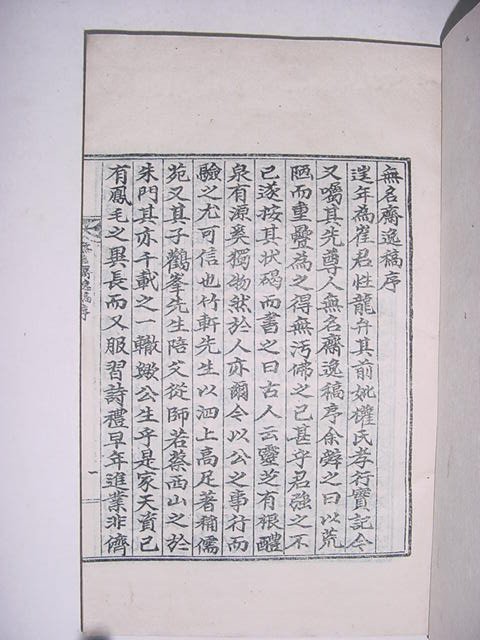 無名齋逸稿序
年為崔君性龍弁其前妣權氏孝行實記今
又囑其先尊人無名齋逸稿序余辭之曰以荒
陋而重疊為之得無汚佛之已甚乎君強之不
已遂按其狀碣而書之曰古人云靈芝有根醴
泉有源奚獨物然於人亦爾今以公之事行而
驗之尤可信也竹軒先生以泗上高足著稱儒
苑又其子鸛峯先生陪父從師若蔡西山之於
朱門其亦千載之一轍歟公生乎是家天資已
有鳳毛之異長而又服習詩禮早年進業非儕
無名齋逸稿序
一